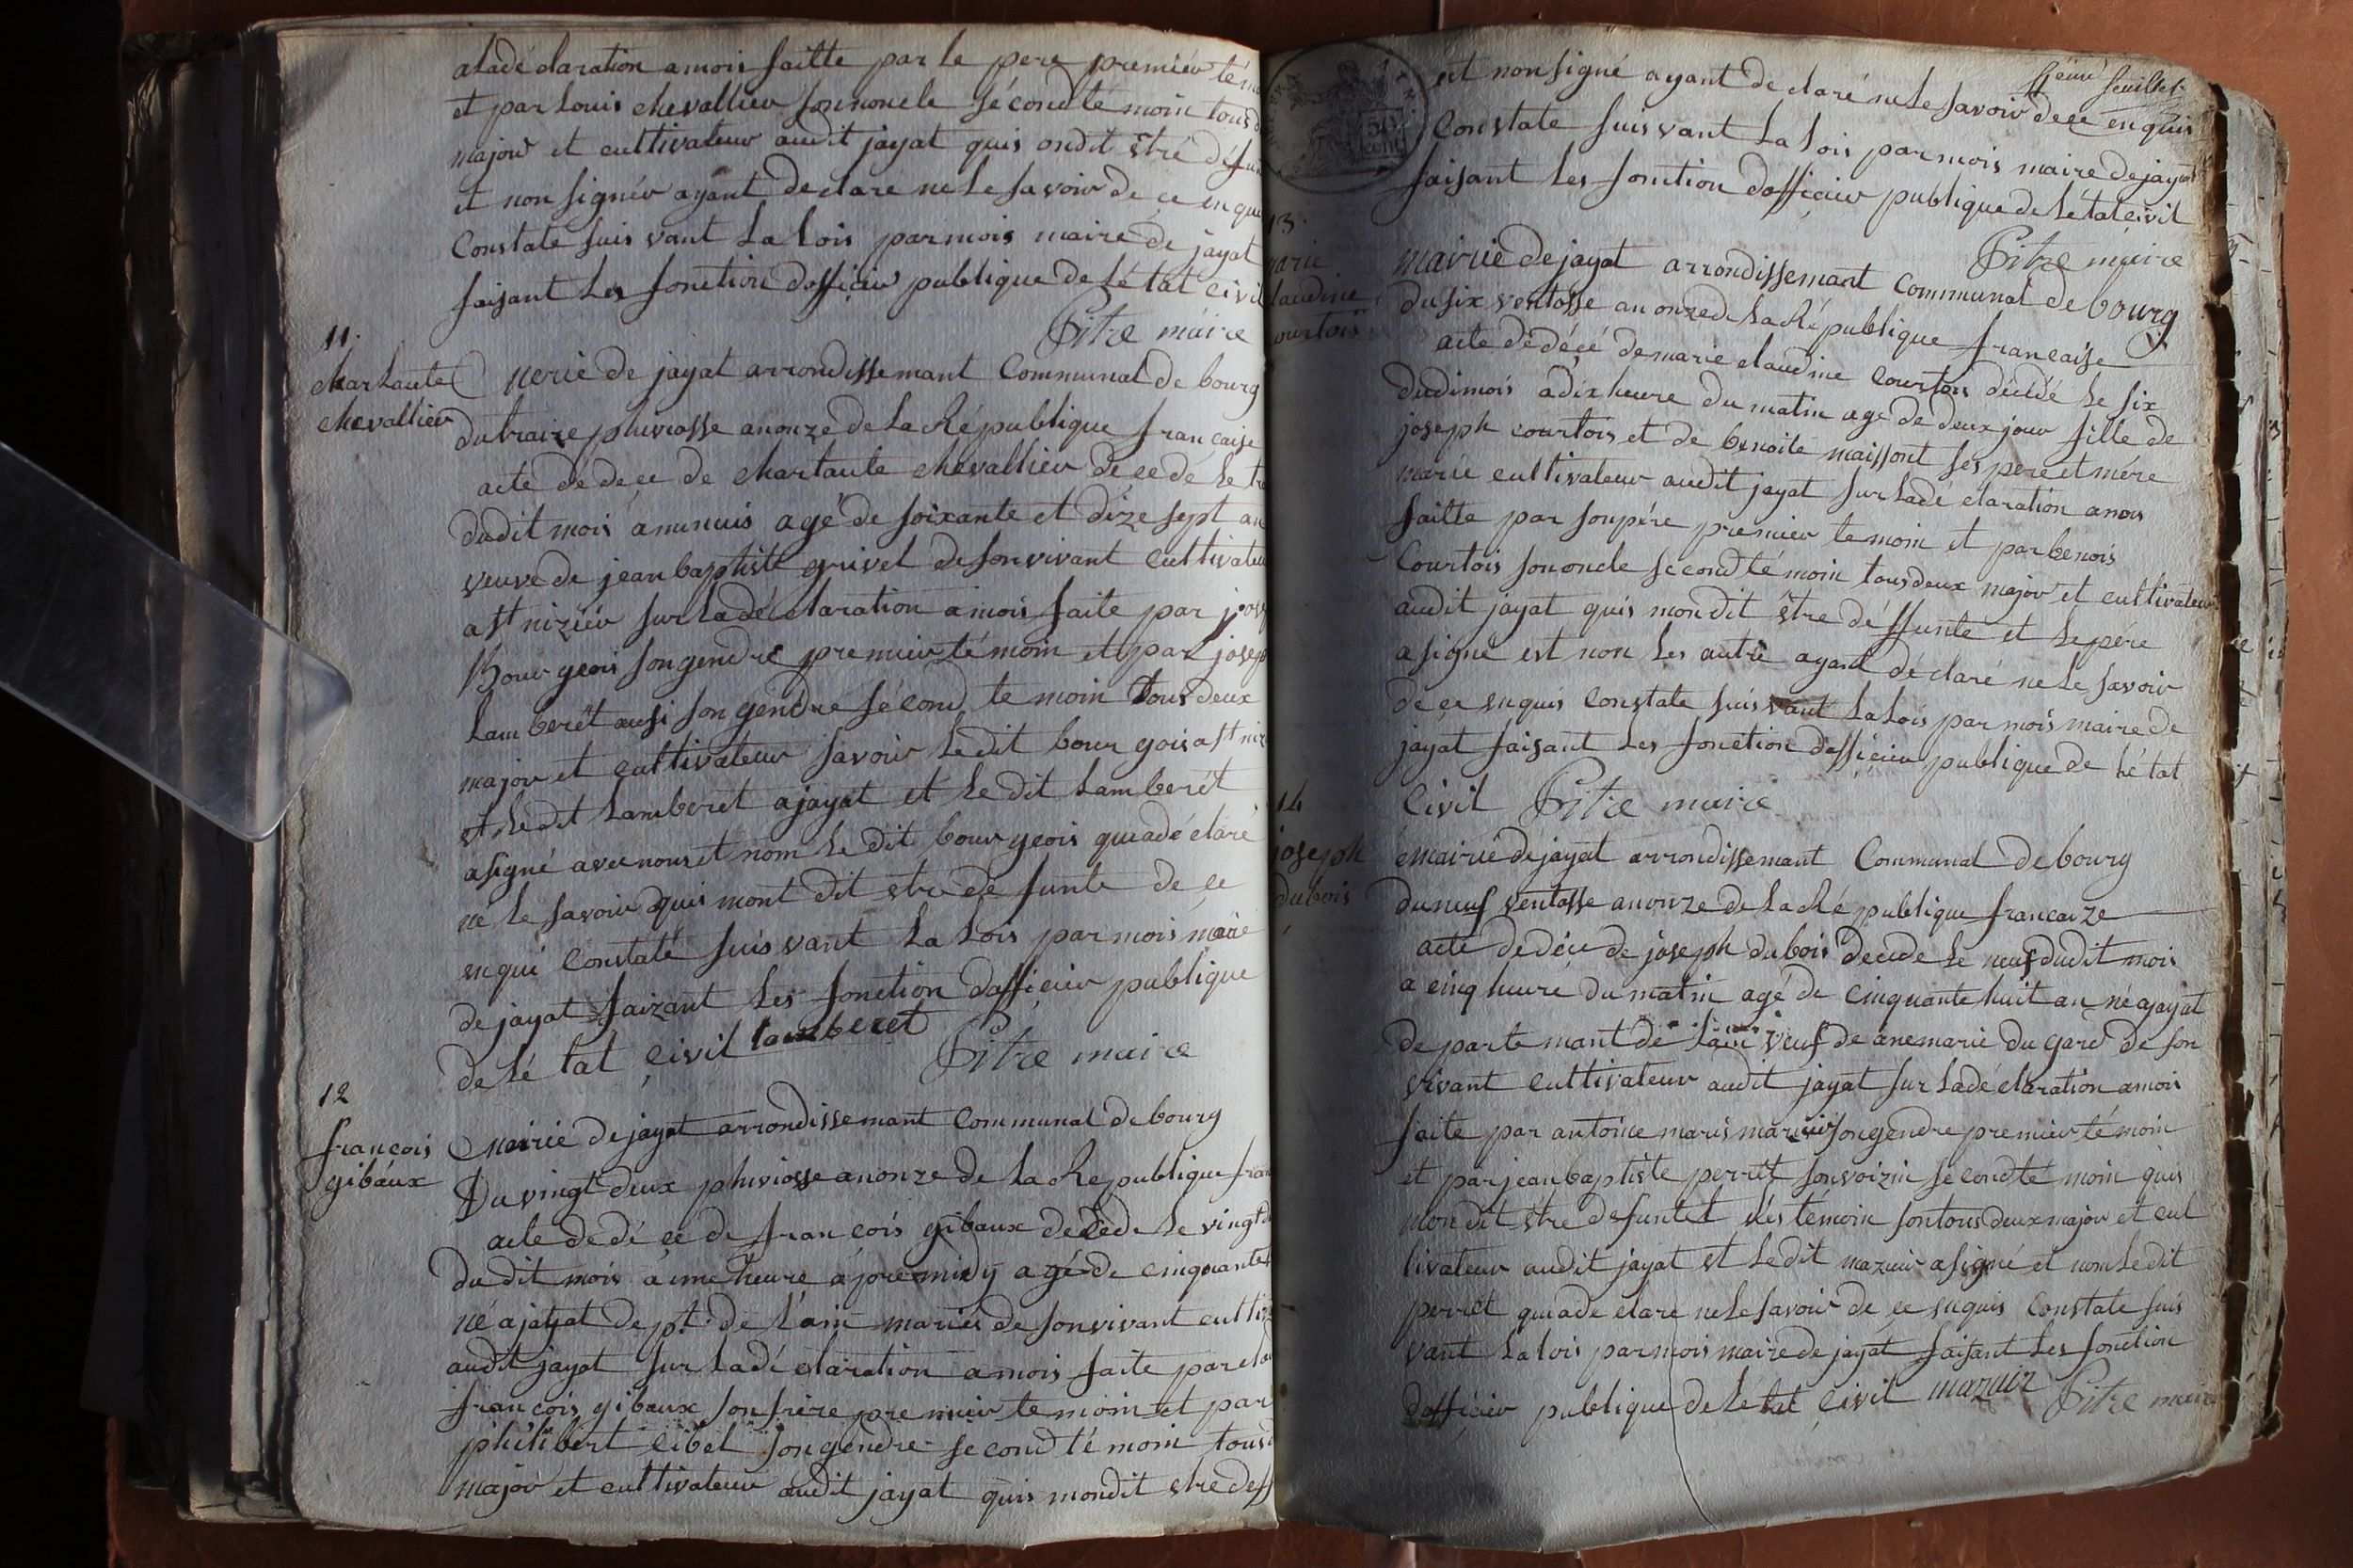 aladé claration a mois faitte par le pere premiér té
et par Louis chevallier son noncle sécond té moin tous
major et cultivateur audit jayat quis ondit être défun
et non signér ayant declaré ne le savoir de ce en qu
Constate suis vant La Lois par mois maire de jayat
faisant Les fonction dofficier publique de Lé tat civil
Pitre maire
11.
charlaute
chevallier
Merie de jayat arrondissemant Communal de bourg
du traize pluviosse an onze de La République francaise
acte de dece de charlaute chevallier de ce dé le tr
dudit mois a munuis agé de soixante et dize sept an
veuve de jean baptiste grivel de son vivant Cultivateu
a st niziér sur La dé claration a mois faite par jos
Bourgeois son gendre premier té moin et par josep
Lamberet ausi son gendre sécond te moin tous deux
major et cultivateur savoir Ledit bour gois a st niz
et Ledit Lamberet a jayat et Le dit Lamberet
a signé avec nous et nom Le dit bourgeois qui a dé claré
ne Le savoir quis mont dit etre dé funte de ce
en qui Constaté suis vant La Lois par mois maire
de jayat faizant Les fonction dofficier publique
de Lé tat civil Lamberet Pitre maire
12
françois
gibaux
Mairie de jayat arrondissemant Communal de bourg
Du vingt deux pluviosse an onze de La Republique fran
acte de dé ce de francois gibaux decede Le vingt d
du dit mois a une heure apremidy agé de cinquante
né a jayat dept. de Lain mariés de son vivant cultiv
audit jayat sur La dé claration a mois faite par clau
francois gibaux son frère premier te moin et par
philibert Cibel son gendre second té moin tous d
major et cultivateur audit jayat quis mondit etre def
feuillet
et non signé ayant de claré ne Le savoir de ce en quis
Constate suis vant La Lois par mois maire de jayat
faisant Les fonction dofficier publique de Létat civil
Pitre maire
13.
marie
laudine
ourtois
Mairie de jayat arrondissemant Communal de bourg
du six ventosse an onze de La République francaise
acte de décé de marie claudine Courtois décédé Le six
dudi mois a dix heure du matin age de deux jour fille de
joseph courtois et de benoite maissont ses pere et mére
marie cultivateur audit jayat sur La dé claration a mois
faitte par son pére premier te moin et par benois
Courtois son oncle second té moin tous deux major et cultivateur
audit jayat quis mondit être déffunte et Le pére
a signé est non Les autre ayant dé claré ne Le savoir
de ce en quis Constate suis vant La Lois par mois maire de
jayat faisant Les fonction dofficier publique de Lé tat
Civil Pitre maire
14
joseph
dubois
Mairie de jayat arrondissemant Communal de bourg
du neuf ventosse an onze de La Ré publique francaize
acte de décé de joseph dubois décédé Le neuf dudit mois
a cinq heure du matin agé de Cinquante huit an né a jayat
de parte mant de Lain veuf de anemarie du gard de son
vivant cultivateur audit jayat sur La dé claration a mois
faite par antoine maris mazuir son gendre premier té moin
et par jean baptiste perret son voizin second té moin quis
mondit etre defuntet Les témoin sont tous deux major et cul
tivateur audit jayat et Le dit mazuir a signé et nom Le dit
perret qui a dé claré ne Le savoir de ce en quis Constate suis
vant La Lois par mois maire de jayat faisant Les fonction
dofficier publique de Lé tat civil mazuir Pitre maire